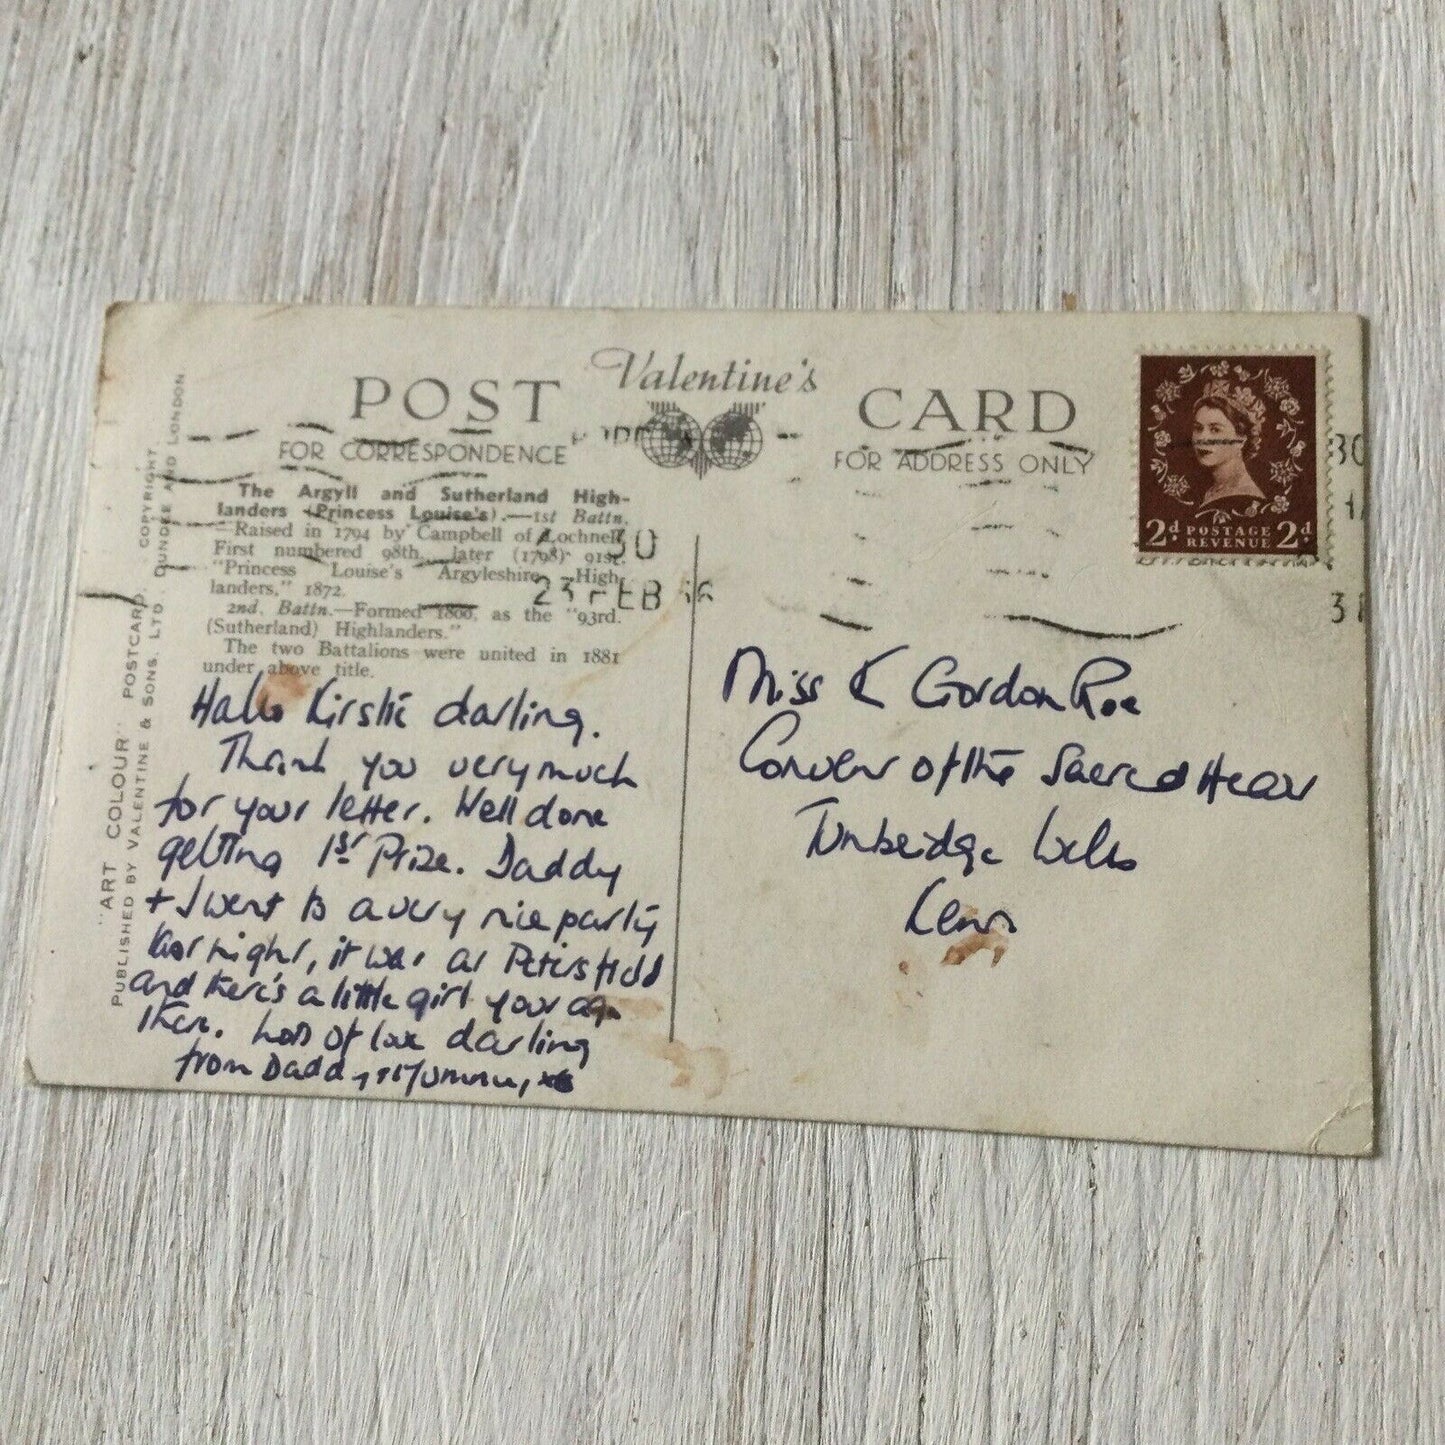 Valentine's
POST CARD
FOR CORRESPONDENCE
FOR ADDRESS ONLY
The Argyll and Sutherland High-
landers (Princess Louise's).—1st Battn.
—Raised in 1794 by Campbell of Lochnell.
First numbered 98th, later (1798) 91st,
"Princess Louise's Argyleshire High-
landers," 1872.
2nd. Battn.—Formed 1800, as the "93rd.
(Sutherland) Highlanders."
The two Battalions were united in 1881
under above title.
30
23 FEB
"ART COLOUR" POSTCARD. COPYRIGHT
PUBLISHED BY VALENTINE & SONS. LTD. DUNDEE AND LONDON
Hallo Kirstie darling.
Thank you very much
for your letter. Well done
getting 1st Prize. Daddy
+ I went to a very nice party
last night, it was at Petersfield
and there's a little girl your age
there. Lots of love darling
from Daddy + Mummy, x
2d POSTAGE 2d
REVENUE
Miss K Gordon Roe
Convent of the Sacred Heart
Tunbridge Wells
Kent